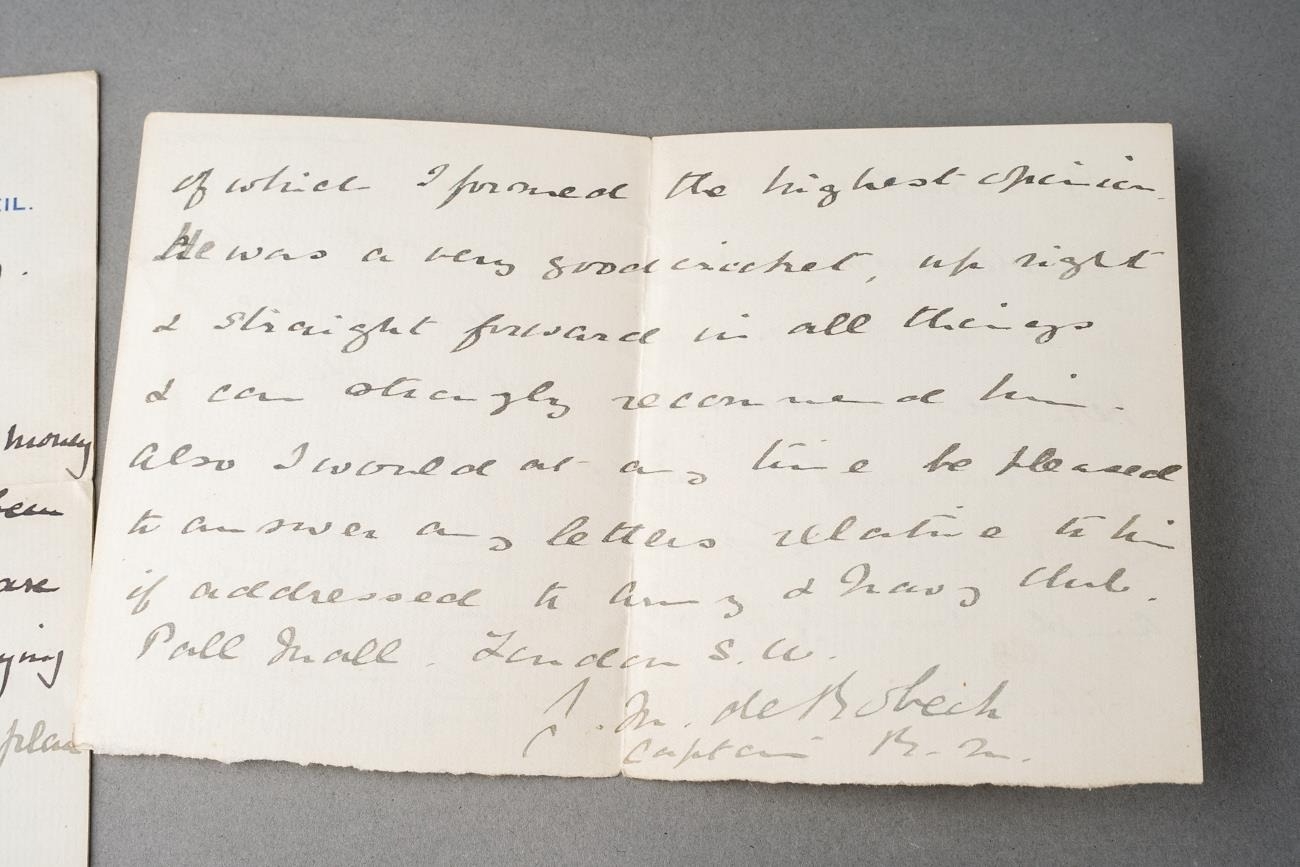 IL.
money
been
are
ying
plan
of which I formed the highest opinion.
He was a very good cricket, up right
& straight forward in all things
& can strongly recommend him.
Also I would at any time be pleased
to answer any letters relative to him
if addressed to Army & Navy Club.
Pall Mall. London S.W.
J. M. de Robeck
Captain R.N.